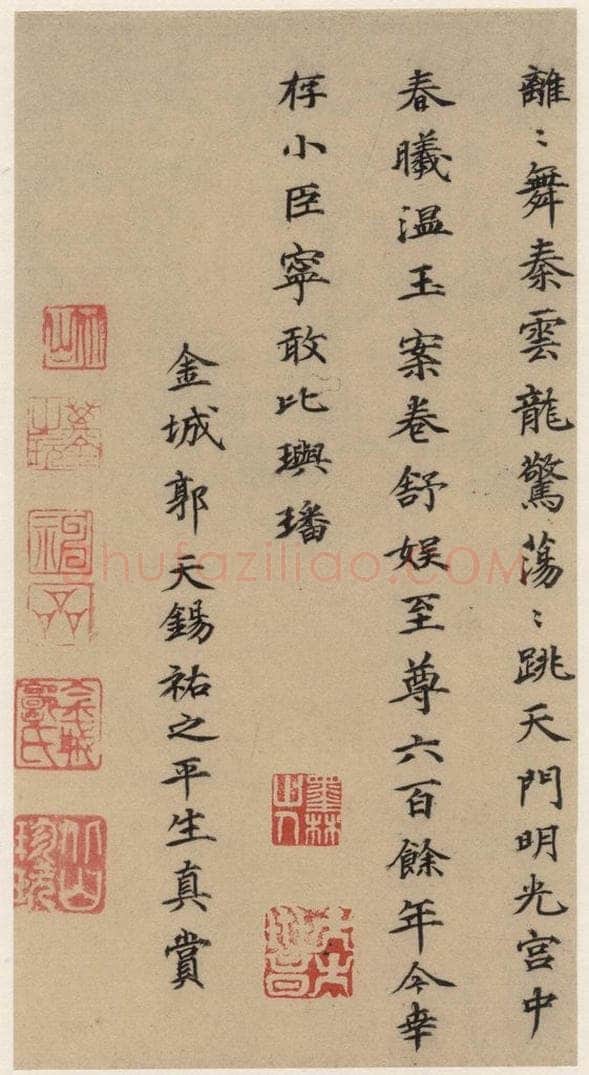 離〻舞秦雲龍驚蕩〻跳天門明光宮中
春曦温玉案卷舒娱至尊六百餘年今幸
存小臣寧敢比璵璠
金城郭天錫祐之平生真賞
金城郭氏
shufaziliao.COM